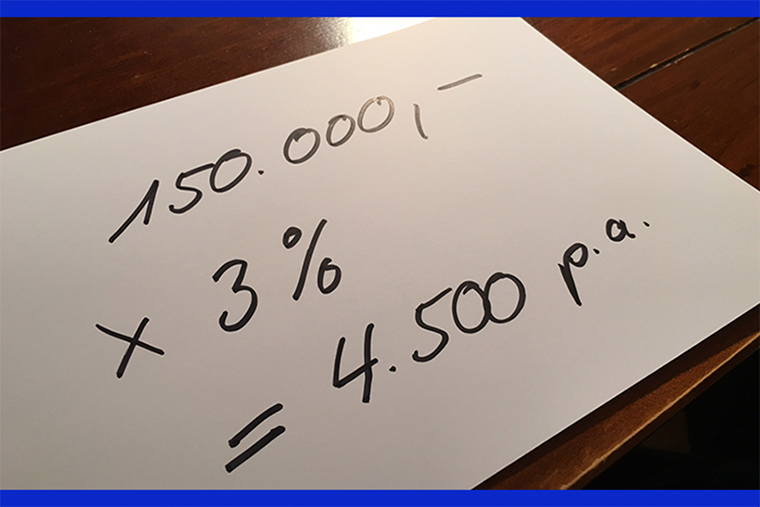 150.000,-
x 3%
= 4.500 p.a.